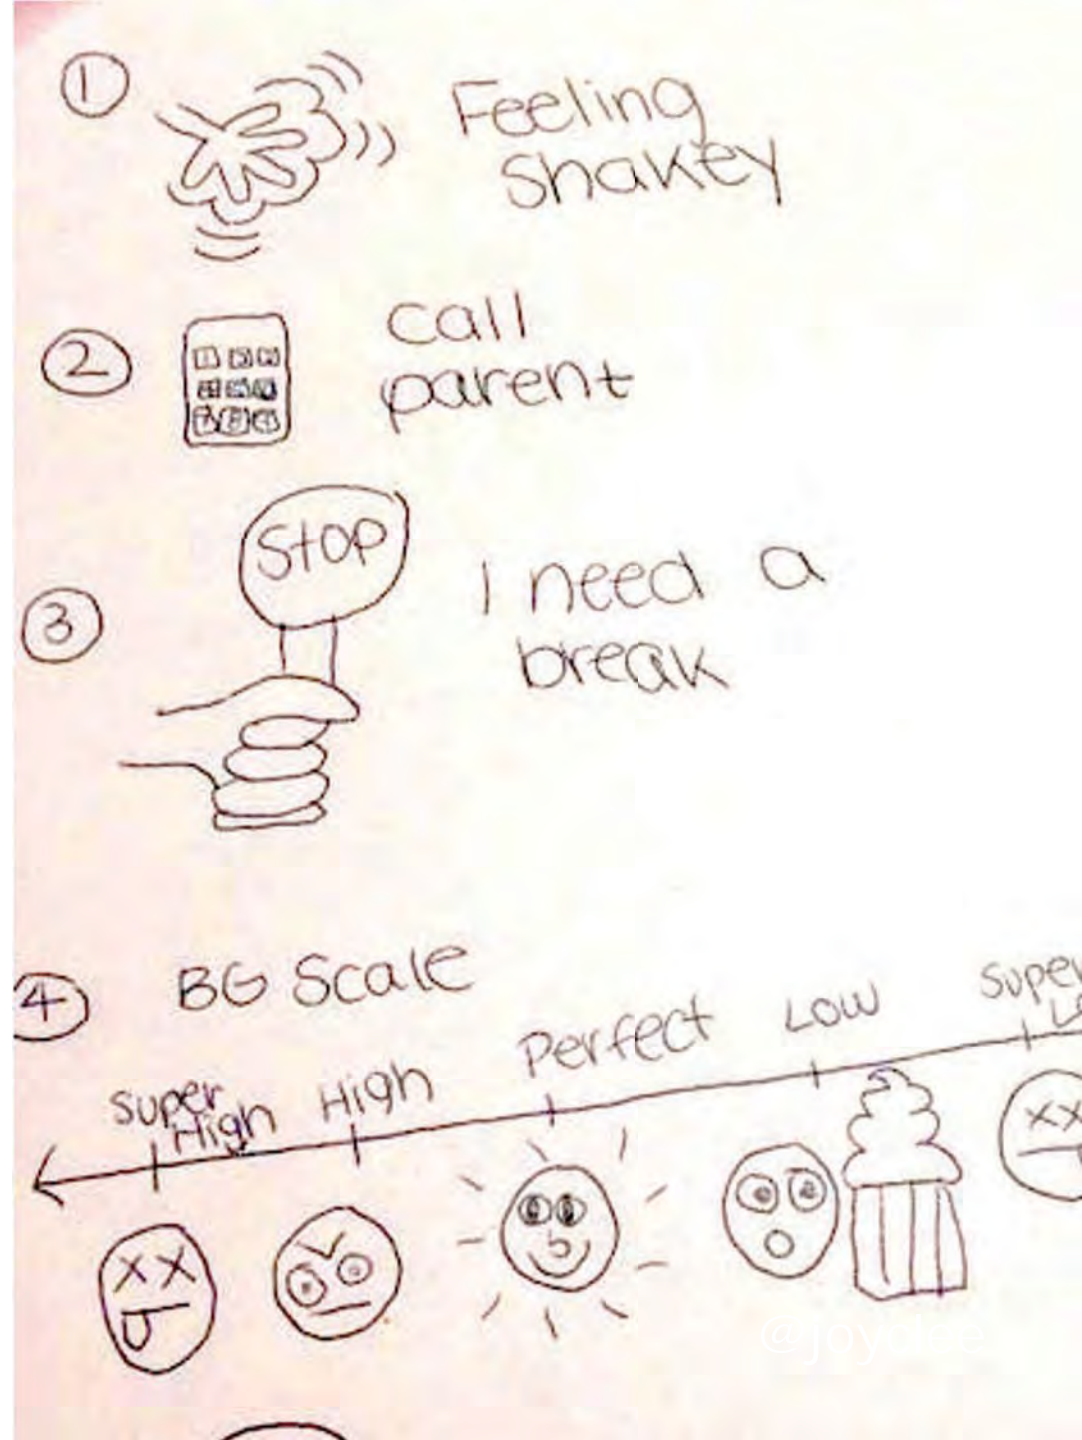 1 Feeling
Shakey
2 call
parent
Stop
3 I need a
break
4 BG Scale
Super
High
High
Perfect
Low
Super